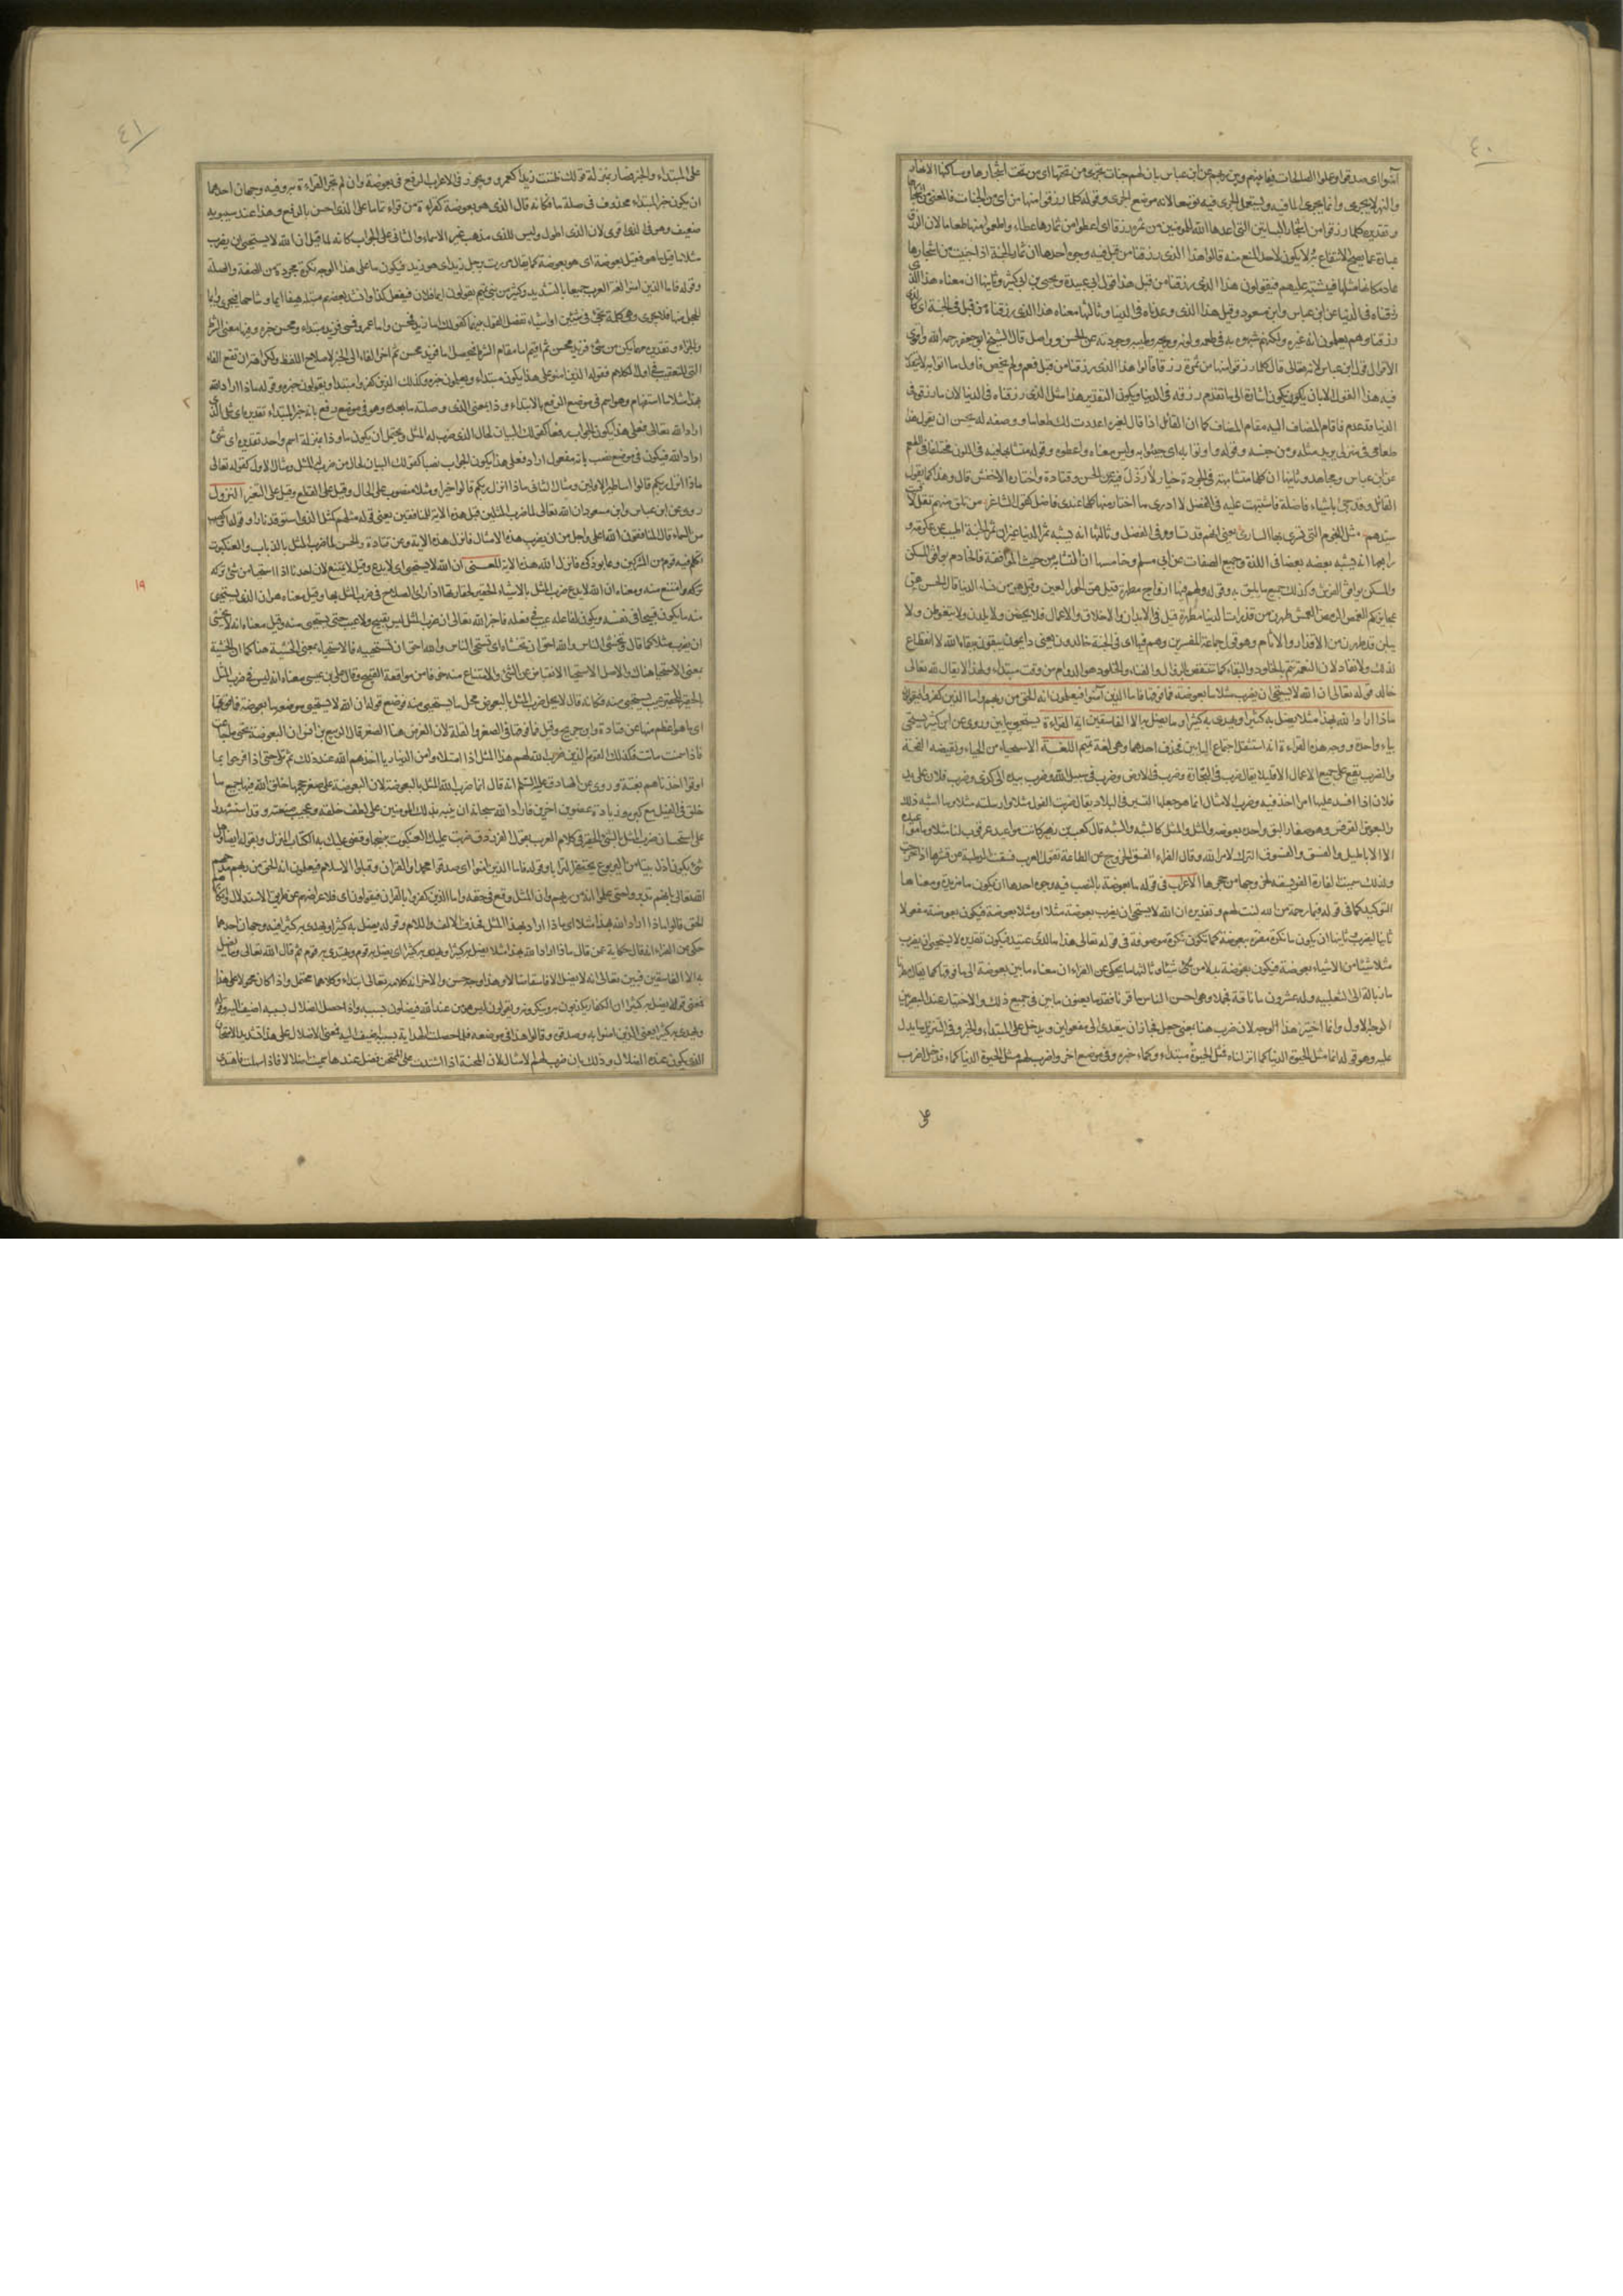 ٤٠
آمنوا اى صدقوا وعملوا الصالحات فيما بينهم وبين ربهم عن ابن عباس بان لهم جنات تجرى من تحتها اى من تحت اشجارها ومساكنها الانهار
والنهر لا يجرى وانما يجرى الماء فيه ويستعمل الجرى فيه توسعا لانه موضع الجرى وقوله كلما رزقوا منها من اى من الجنات والمعنى من اشجارها
وتقديره كلما رزقوا من اشجار البساتين التى اعدها الله للمؤمنين من ثمرة رزقا اى اعطوا من ثمارها عطاء واطعموا منها طعاما لان الرزق
عبارة عما يصح الانتفاع به ولا يكون لاحد المنع منه قالوا هذا الذى رزقنا من قبل فيه وجوه احدها ان ثمار الجنة اذا جنيت من اشجارها
عاد مكانها مثلها فيشتبه عليهم فيقولون هذا الذى رزقنا من قبل هذا قول ابى عبيدة ويحيى بن ابى كثير وثانيها ان معناه هذا الذى
رزقناه فى الدنيا عن ابن عباس وابن مسعود وقيل هذا الذى وعدناه فى الدنيا وثالثها معناه هذا الذى رزقناه من قبل فى الجنة اى كالذى
رزقنا وهم يعلمون انه غيره ولكنهم شبهوه به فى طعمه ولونه وريحه وطيبه وجودته عن الحسن وواصل قال الشيخ ابو جعفر رحمه الله واقوى
الاقوال قول ابن عباس لانه تعالى قال كلما رزقوا منها من ثمرة رزقا قالوا هذا الذى رزقنا من قبل فعم ولم يخص فاول ما اتوا به لا يتقدر
فيه هذا القول الا بان يكون اشارة الى ما تقدم رزقه فى الدنيا ويكون التقدير هذا مثل الذى رزقناه فى الدنيا لان ما رزقوه فى
الدنيا قد عدم فاقام المضاف اليه مقام المضاف كما ان القائل اذا قال لغيره اعددت لك طعاما ووصفه له يحسن ان يقول هذا
طعامى فى منزلى يريد مثله ومن جنسه وقوله واوتوا به اى جيئوا به وليس معناه واعطوه وقوله متشابها فيه فى اللون مختلفا فى الطعم
عن ابن عباس ومجاهد وثانيها ان كلها متشابهة فى الجودة خيار لا رذل فيه عن الحسن وقتادة واختاره الاخفش قال وهذا كما يقول
القائل وقد جئ باشياء فاضلة فاشتبهت عليه فى الفضل لا ادرى ما اختار منها كلها عندى فاضل كقول الشاعر من تلق منهم تقل لاقيت
سيدهم مثل النجوم التى يسرى بها السارى يعنى انهم قد تساووا فى الفضل وثالثها انه يشبه ثمر الدنيا غير ان ثمر الجنة اطيب عن عكرمة و
رابعها انه يشبه بعضه بعضا فى اللذة وجميع الصفات عن ابى مسلم وخامسها ان التشابه من حيث الموافقة فالخادم يوافق المسكن
والمسكن يوافق الفرش وكذلك جميع ما يليق به وقوله ولهم فيها ازواج مطهرة قيل هن الحور العين وقيل هن من نساء الدنيا قال الحسن هن
عجائزكم الغمص الرمص العمش طهرن من قذرات الدنيا مطهرة قيل فى الابدان والاخلاق والاعمال فلا يحضن ولا يلدن ولا يتغوطن ولا
يبلن قد طهرن من الاقذار والآثام وهو قول جماعة المفسرين وهم فيها اى فى الجنة خالدون يعنى دايمون يبقون ببقاء الله لا انقطاع
لذلك ولا نفاد لان النعمة تتم بالخلود والبقاء كما تنتقص بالزوال والفناء والخلود هو الدوام من وقت مبتداء ولهذا لا يقال لله تعالى
خالد قوله تعالى ان الله لا يستحيى ان يضرب مثلا ما بعوضة فما فوقها فاما الذين آمنوا فيعلمون انه الحق من ربهم واما الذين كفروا فيقولون
ماذا اراد الله بهذا مثلا يضل به كثيرا ويهدى به كثيرا وما يضل به الا الفاسقين اية القراءة يستحيى بيائين وروى عن ابن كثير يستحى
بياء واحدة ووجه هذه القراءة انه استثقل اجتماع اليائين فحذف احدهما وهى لغة تميم اللغة الاستحياء من الحياء ونقيضه القحة
والضرب يقع على جميع الاعمال الا قليلا يقال ضرب فى التجارة وضرب فى الارض وضرب فى سبيل الله وضرب بيده الى كذا وضرب فلان على يد
فلان اذا افسد عليه امرا اخذ فيه وضرب الامثال انما هو جعلها لتسير فى البلاد يقال ضربت القول مثلا وارسلته مثلا وما اشبه ذلك
والبعوض القرقس وهو صغار البق واحدته بعوضة والمثل والمثل كالشبه والشبه قال كعب بن زهير كانت مواعيد عرقوب لها مثلا وما مواعيده
الا الاباطيل والفسق والفسوق الترك لامر الله وقال الفراء الفسق الخروج عن الطاعة تقول العرب فسقت الرطبة عن قشرها اذا خرجت
ولذلك سميت الفارة الفويسقة لخروجها من جحرها الاعراب فى قوله ما بعوضة بالنصب فيه وجوه احدها ان يكون ما مزيدة ومعناها
التوكيد كما فى قوله فبما رحمة من الله لنت لهم وتقديره ان الله لا يستحيى ان يضرب بعوضة مثلا او مثلا بعوضة فيكون بعوضة مفعولا
ثانيا ليضرب وثانيها ان يكون ما نكرة مفسرة ببعوضة كما تكون نكرة موصوفة فى قوله تعالى هذا ما لدى عتيد فيكون تقديره لا يستحيى ان يضرب
مثلا شيئا من الاشياء بعوضة فيكون بعوضة بدلا من شيئا وثالثها ما يحكى عن الفراء ان معناه ما بين بعوضة الى ما فوقها كما يقال مطرنا
ما زبالة الى الثعلبية وله عشرون ما ناقة فجملا وهى احسن الناس ما قرنا فقدما يعنون ما بين فى جميع ذلك والاختيار عند البصريين
الوجه الاول وانما اختير هذا الوجه لان ضرب هنا بمعنى جعل فجاز ان يتعدى الى مفعولين ويدخل على المبتداء والخبر وفى التنزيل ما يدل
عليه وهو قوله انما مثل الحيوة الدنيا كماء انزلناه فمثل الحيوة مبتداء وكماء خبره وفى موضع آخر واضرب لهم مثل الحيوة الدنيا كماء فدخل اضرب
على
٤١
على المبتداء والخبر فصار بمنزلة قولك ظننت زيدا كعمرو ويجوز فى الاعراب الرفع فى بعوضة وان لم تجز القراءة به وفيه وجهان احدهما
ان يكون خبرا لمبتداء محذوف فى صلة ما فكانه قال الذى هو بعوضة كقراءة من قراء تماما على الذى احسن بالرفع وهذا عند سيبويه
ضعيف وهو فى الذى اقوى لان الذى اطول وليس للذى مذهب غير الاسماء والثانى على الجواب كانه لما قيل ان الله لا يستحيى ان يضرب
مثلا ما قيل ما هو فقيل بعوضة اى هو بعوضة كما يقال مررت برجل زيد اى هو زيد فيكون ما على هذا الوجه نكرة مجردة من الصفة والصلة
وقوله فاما الذين امنوا لغة العرب جميعا بالتشديد وكثير من بنى تميم يقولون ايما فلان فيفعل كذا وانشد بعضهم مبتلة هيفاء ايما وشاحها فيجرى وايما
الحجل منها فلا يجرى وهى كلمة تجئ فى شيئين او اشياء تفصل القول بينهما كقولك اما زيد فمحسن واما عمرو فمسئ فزيد مبتداء ومحسن خبره وفيها معنى الشرط
والجزاء وتقديره مهما يكن من شئ فزيد محسن ثم اقيم اما مقام الشرط فحصل اما فزيد محسن ثم اخر الفاء الى الخبر لاصلاح اللفظ ولكراهة ان تقع الفاء
التى للتعقيب فى اول الكلام فقوله الذين امنوا على هذا يكون مبتداء ويعلمون خبره وكذلك الذين كفروا مبتداء ويقولون خبره وقوله ماذا اراد الله
بهذا مثلا ما استفهام وهو اسم فى موضع الرفع بالابتداء وذا بمعنى الذى وصلته ما بعده وهو فى موضع رفع بانه خبر المبتداء تقديره اى شئ الذى
اراد الله تعالى فعلى هذا يكون الجواب رفعا كقولك البيان لحال الذى ضرب له المثل ويحتمل ان يكون ما وذا بمنزلة اسم واحد تقديره اى شئ
اراد الله فيكون فى موضع نصب بانه مفعول اراد فعلى هذا يكون الجواب نصبا كقولك البيان لحال من ضرب له المثل ومثال الاول كقوله تعالى
ماذا انزل ربكم قالوا اساطير الاولين ومثال الثانى ماذا انزل ربكم قالوا خيرا ومثلا منصوب على الحال وقيل على القطع وقيل على التفسير النزول
روى عن ابن عباس وابن مسعود ان الله تعالى لما ضرب المثلين قبل هذه الآية للمنافقين يعنى قوله مثلهم كمثل الذى استوقد نارا وقوله او كصيب
من السماء قال المنافقون الله اعلى واجل من ان يضرب هذه الامثال فانزل هذه الاية وعن قتادة والحسن لما ضرب المثل بالذباب والعنكبوت
تكلم فيه قوم من المشركين وعابوا ذكره فانزل الله هذه الاية المعنى ان الله لا يستحيى اى لا يدع وقيل لا يمتنع لان احدنا اذا استحيا من شئ تركه
وامتنع منه ومعناه ان الله لا يدع ضرب المثل بالاشياء الحقيرة لحقارتها اذا راى الصلاح فى ضرب المثل بها وقيل معناه هو ان الذى يستحيى
منه ما يكون قبيحا فى نفسه ويكون لفاعله عيب فى فعله فاخبر الله تعالى ان ضرب المثل ليس بقبيح ولا عيب حتى يستحيى منه وقيل معناه انه لا يخشى
ان يضرب مثلا كما قال وتخشى الناس والله احق ان تخشاه اى تستحى الناس والله احق ان تستحييه فالاستحياء بمعنى الخشية هنا كما ان الخشية
بمعنى الاستحياء هناك واصل الاستحياء الانقباض عن الشئ والامتناع منه خوفا من مواقعة القبيح وقال على بن عيسى معناه انه ليس فى ضرب المثل
بالحقير للحقير عيب يستحيى منه فكانه قال لا يحل ضرب المثل بالبعوض محل ما يستحيى منه فوضع قوله ان الله لا يستحيى موضعه ما بعوضة فما فوقها
اى ما هو اعظم منها عن قتادة وابن جريج وقيل فما فوقها فى الصغر والقلة لان الغرض هنا الصغر قال الربيع بن انس ان البعوضة تحيى ما جاعت
فاذا سمنت ماتت فكذلك القوم الذين ضرب الله لهم هذا المثل اذا امتلاوا من الدنيا ريا اخذهم الله عند ذلك ثم تلا حتى اذا فرحوا بما
اوتوا اخذناهم بغتة وروى عن الصادق عليه السلام انه قال انما ضرب الله المثل بالبعوضة لان البعوضة على صغر حجمها خلق الله فيها جميع ما
خلق فى الفيل مع كبره وزيادة عضوين اخرين فاراد الله سبحانه ان ينبه بذلك المؤمنين على لطف خلقه وعجيب صنعته وقد استشهد
على استحسان ضرب المثل بالشئ الحقير فى كلام العرب بقول الفرزدق ضربت عليك العنكبوت بنسجها وقضى عليك به الكتاب المنزل وبقوله ايضا وهل
شئ يكون اذل بيتا من اليربوع يحتفر الترابا وقوله فاما الذين امنوا اى صدقوا محمدا والقران وقبلوا الاسلام فيعلمون انه الحق من ربهم مدحهم
الله تعالى بانهم تدبروا حتى علموا انه من ربهم وان المثل وقع فى حقه واما الذين كفروا بالقران فيقولون اى فلاعراضهم عن طريق الاستدلال وانكارهم
الحق قالوا ماذا اراد الله بهذا مثلا اى ماذا اراد بهذا المثل فحذف الالف واللام وقوله يضل به كثيرا ويهدى به كثيرا فيه وجهان احدهما
حكى عن الفراء انه قال حكاية عن قال ماذا اراد الله بهذا مثلا يضل به كثيرا ويهدى به كثيرا اى يضل به قوم ويهتدى به قوم ثم قال الله تعالى وما يضل
به الا الفاسقين فبين تعالى انه لا يضل الا فاسقا ضالا وهذا وجه حسن والاخر انه كلامه تعالى ابتداء وكلاهما محتمل واذا كان محمولا على هذا
فمعنى قوله يضل به كثيرا ان الكفار يكذبون به وينكرونه ويقولون ليس هو من عند الله فيضلون بسببه واذا حصل الضلال بسببه اضيف اليه وقوله
ويهدى به كثيرا يعنى الذين امنوا به وصدقوه وقالوا هذا فى موضعه فلما حصلت الهداية بسببه اضيف اليه فمعنى الاضلال على هذا تشديد الامتحان
الذى يكون عنده الضلال وذلك بان ضرب لهم الامثال لان المحنة اذا اشتدت على الممتحن فضل عندها سميت اضلالا فاذا سهلت فاهتدى
١٩